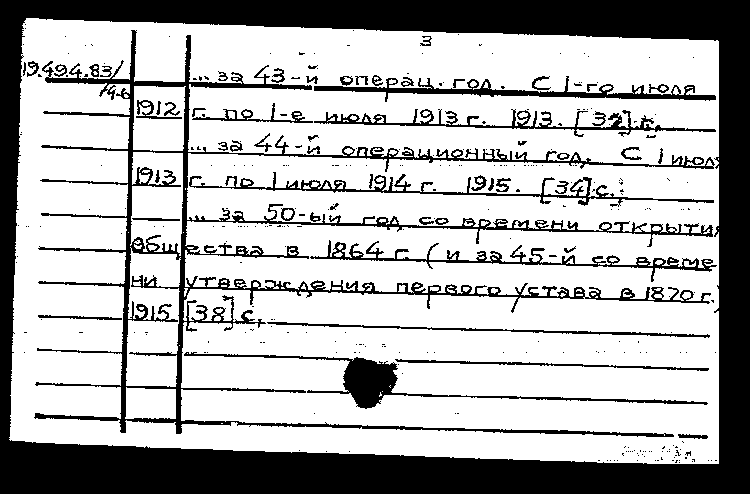 3
19.49.4.83/ ... за 43-й операц. год. С 1-го июля
/4-6
1912 г. по 1-е июля 1913 г. 1913. [32] с.
... за 44-й операционный год. С 1 июля
1913 г. по 1 июля 1914 г. 1915. [34] с.;
... за 50-ый год со времени открытия
общества в 1864 г. (и за 45-й со време
ни утверждения первого устава в 1870 г.)
1915 [38] с.